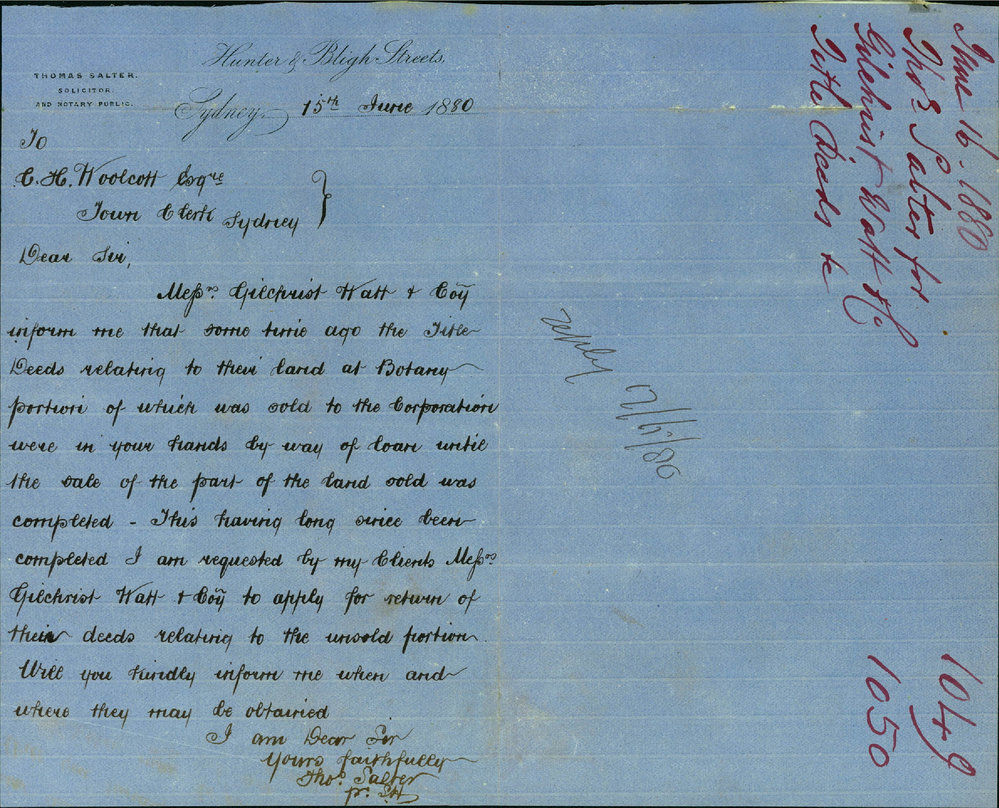 Hunter & Bligh Streets.
THOMAS SALTER.
SOLICITOR
AND NOTARY PUBLIC.
Sydney. 15th June 1880
To
C. H. Woolcott Esqre
Town Clerk Sydney
Dear Sir,
Messrs. Gilchrist Watt & Coy
inform me that some time ago the Title
Deeds relating to their land at Botany
portion of which was sold to the Corporation
were in your hands by way of loan until
the sale of the part of the land sold was
completed - This having long since been
completed I am requested by my Clients Messrs
Gilchrist Watt & Coy to apply for return of
their deeds relating to the unsold portion.
Will you kindly inform me when and
where they may be obtained
I am Dear Sir
Yours faithfully
Thos. Salter
June 16 - 1880
Thos Salter for
Gilchrist Watt & Co
Title Deeds &c
1049
1050